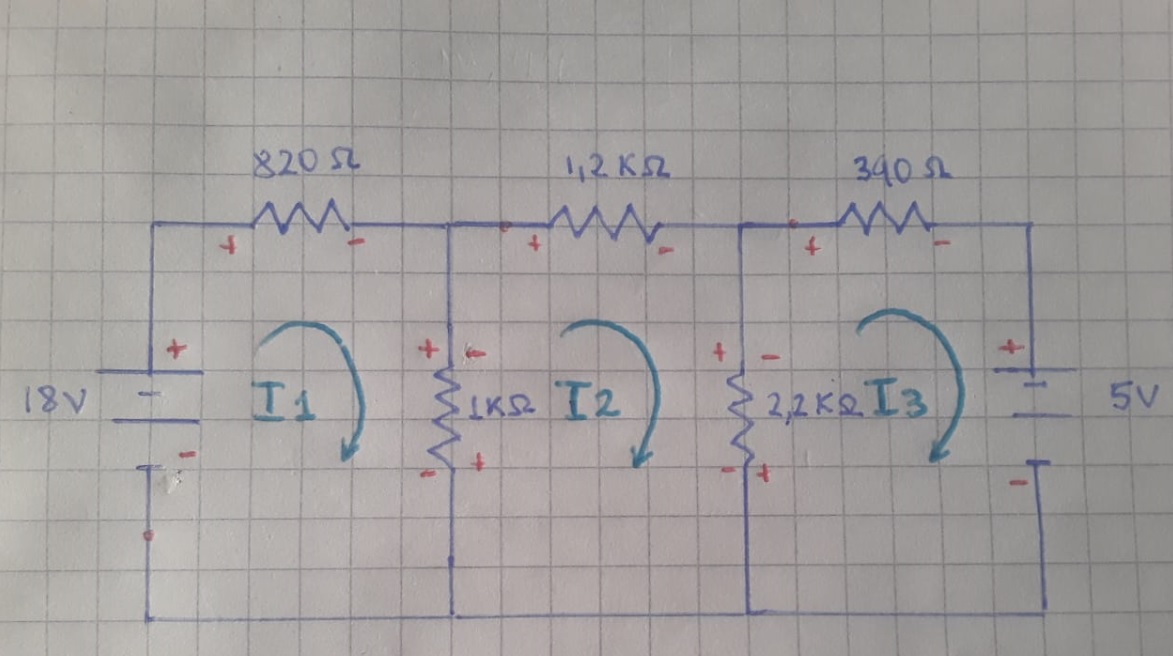 820 Ω 1,2 KΩ 390 Ω
+ - + - + -
+ + - + - +
18V I1 1KΩ I2 2,2KΩ I3 5V
- - + - + -